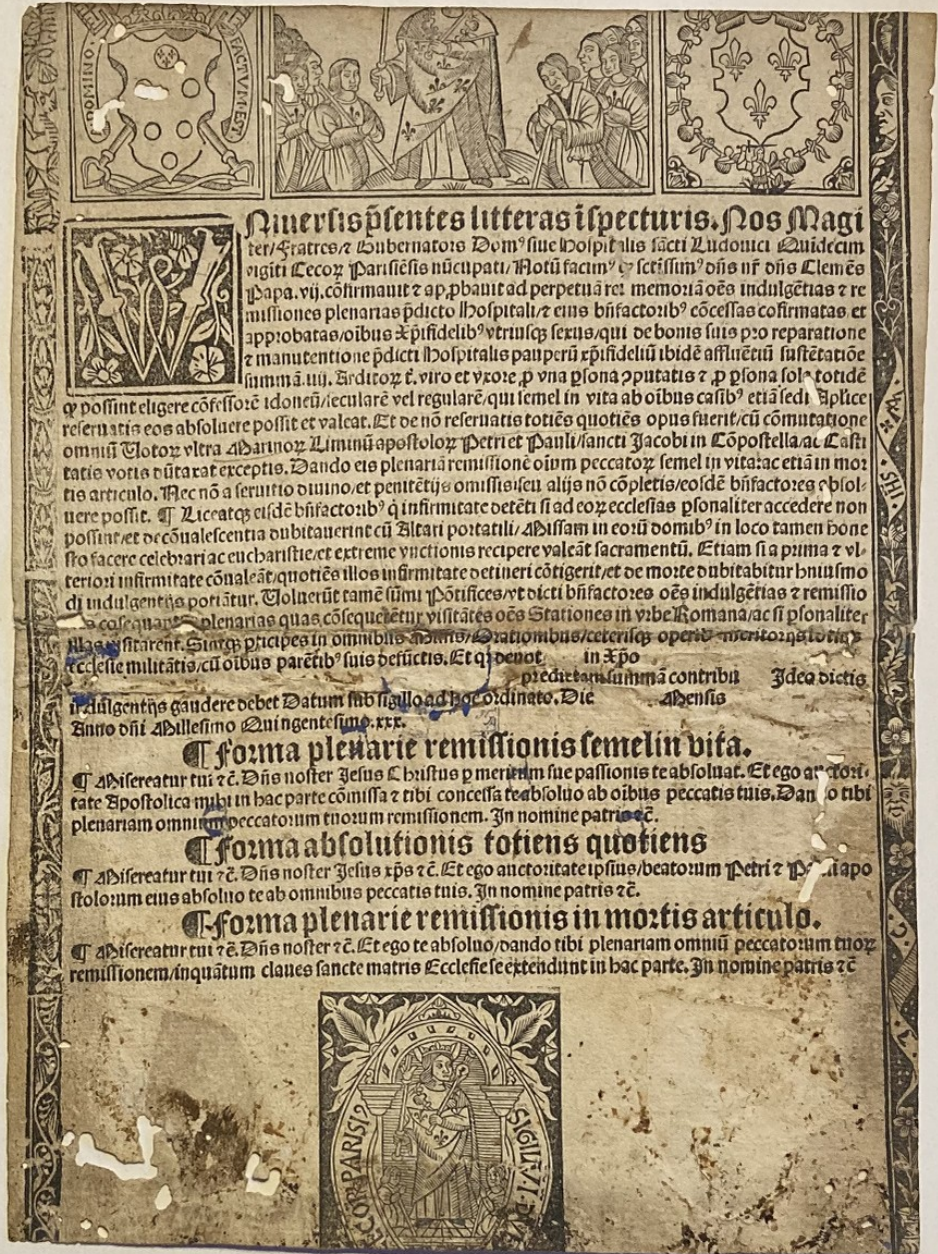 DOMINO
FACTVM·EST
Niuersis p̄sentes litteras īspecturis. Nos Magi
ter/ Fratres/ ⁊ Gubernatores Domꝰ siue Hospitalis sācti Ludouici Quīdecim
vigīti Cecoꝝ Parisiēsis nūcupati/ Notū facimꝰ sctissimꝰ dn̄s nr̄ dn̄s Clemēs
Papa. vij. cōfirmauit ⁊ approbauit ad perpetuā rei memoriā oēs indulgētias ⁊ re
missiones plenarias p̄dicto Hospitali/ ⁊ eius bn̄factoribꝰ cōcessas cōfirmatas et
approbatas/ oībus Xp̄ifidelibꝰ vtriusqꝫ sexus/ qui de bonis suis pro reparatione
⁊ manutentione p̄dicti Hospitalis pauperū xp̄ifideliū ibidē affluētiū sustētatiōe
summā. iiij. Arditoꝝ t̄. viro et vxore ꝓ vna ꝑsona ꝯputatis ⁊ ꝓ ꝑsona sola totidē
ꝙ possint eligere cōfessorē idoneū/ seculare vel regularē/ qui semel in vita ab oībus casibꝰ etiā sedi Aplice
reseruatis eos absoluere possit et valeat. Et de nō reseruatis totiēs quotiēs opus fuerit/ cū cōmutatione
omniū Votoꝝ vltra Marinoꝝ Liminū apostoloꝝ Petri et Pauli/ sancti Jacobi in Cōpostella/ ac Casti
tatis votis dūtaxat exceptis. Dando eis plenariā remissionē oīum peccatoꝝ semel in vita: ac etiā in mor
tis articulo. Nec nō a seruitio diuino/ et penitētijs omissis seu alijs nō cōpletis/ eosdē bn̄factores absol-
uere possit. ¶ Liceatqꝫ eisdē bn̄factoribꝰ q̄ infirmitate detēti si ad eoꝝ ecclesias ꝑsonaliter accedere non
possint/ et de cōualescentia dubitauerint cū Altari portatili/ Missam in eorū domibꝰ in loco tamen hone
sto facere celebrari ac eucharistie/ et extreme vnctionis recipere valeāt sacramentū. Etiam si a prima ⁊ vl-
teriori infirmitate cōualeāt/ quotiēs illos infirmitate detineri cōtigerit/ et de morte dubitabitur huiusmo
di indulgentijs potiātur. Voluerūt tamē sūmi Pōtifices/ vt dicti bn̄factores oēs indulgētias ⁊ remissio
plenarias quas cōsequerētur visitātes oēs Stationes in vrbe Romana/ ac si ꝑsonaliter
illas visitarent. Sintqꝫ ꝑticipes in omnibus Orationibus/ ceterisqꝫ
Ecclesie militātis/ cū oībus parētibꝰ suis defūctis. Et q̄ deuot in Xp̄o
predictam summā contribu Ideo dictis
indulgentijs gaudere debet Datum sub sigillo ad hoc ordinato. Die Mensis
Anno dn̄i Millesimo Quingentesimo. xxx.
¶ Forma plenarie remissionis semel in vita.
¶ Misereatur tui ⁊c̄. Dn̄s noster Jesus Christus ꝑ meritum sue passionis te absoluat. Et ego auctori-
tate Apostolica mihi in hac parte cōmissa ⁊ tibi concessa te absoluo ab oībus peccatis tuis. Dando tibi
plenariam omnium peccatorum tuorum remissionem. In nomine patris ⁊c̄.
¶ Forma absolutionis totiens quotiens
¶ Misereatur tui ⁊c̄. Dn̄s noster Jesus xp̄s ⁊c̄. Et ego auctoritate ipsius/ beatorum Petri ⁊ Pauli apo
stolorum eius absoluo te ab omnibus peccatis tuis. In nomine patris ⁊c̄.
¶ Forma plenarie remissionis in mortis articulo.
¶ Misereatur tui ⁊c̄. Dn̄s noster ⁊c̄. Et ego te absoluo/ dando tibi plenariam omniū peccatorum tuoꝝ
remissionem/ inquātum claues sancte matris Ecclesie se extendunt in hac parte. In nomine patris ⁊c̄
SIGILVM
PARISI
IHS